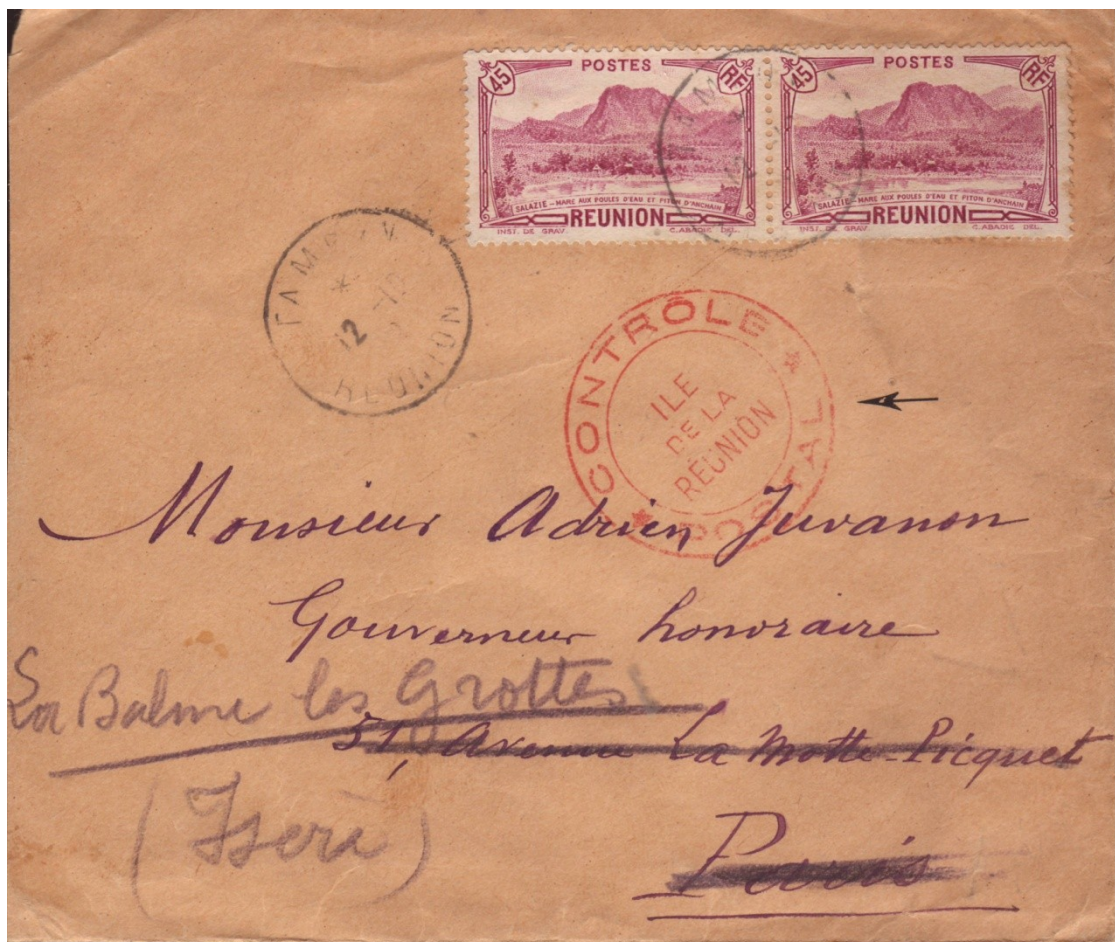 45 POSTES RF
SALAZIE – MARE AUX POULES D'EAU ET PITON D'ANCHAIN
REUNION
INST. DE GRAV. C. ABADIE DEL.
45 POSTES RF
SALAZIE – MARE AUX POULES D'EAU ET PITON D'ANCHAIN
REUNION
INST. DE GRAV. C. ABADIE DEL.
12
REUNION
CONTRÔLE POSTAL
ILE
DE LA
RÉUNION
Monsieur Adrien Juvanon
Gouverneur honoraire
La Balme les Grottes
51, Avenue La Motte-Picquet
(Isère)
Paris